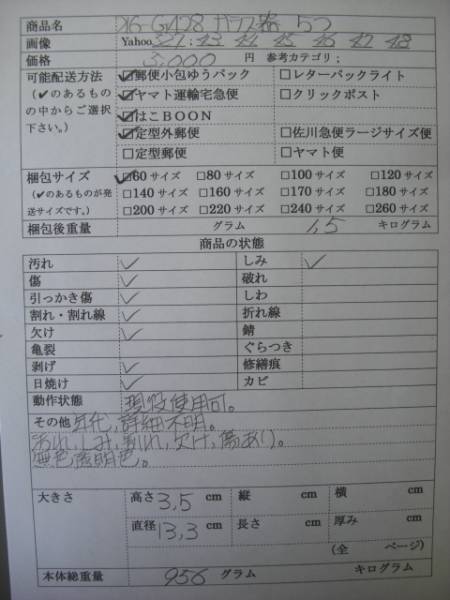 商品名 X6-G1428 ガラス器 5つ
画像 Yahoo 327; 43 44 45 46 47 48
価格 3,000 円 参考カテゴリ;
可能配送方法
(✓のあるもの
の中からご選択
下さい。)
☑郵便小包ゆうパック □レターパックライト
☑ヤマト運輸宅急便 □クリックポスト
☑はこBOON
☑定型外郵便 □佐川急便ラージサイズ便
□定型郵便 □ヤマト便
梱包サイズ
(✓のあるものが発
送サイズです。)
☑60 サイズ □80 サイズ □100 サイズ □120 サイズ
□140 サイズ □160 サイズ □170 サイズ □180 サイズ
□200 サイズ □220 サイズ □240 サイズ □260 サイズ
梱包後重量 グラム 1,5 キログラム
商品の状態
汚れ ✓ しみ ✓
傷 ✓ 破れ
引っかき傷 ✓ しわ
割れ・割れ線 ✓ 折れ線
欠け ✓ 錆
亀裂 ぐらつき
剥げ ✓ 修繕痕
日焼け ✓ カビ
動作状態 現役使用可。
その他 年代,詳細不明。
汚れ,しみ,割れ,欠け,傷あり。
無色透明色。
大きさ 高さ 3,5 cm 縦 cm 横 cm
直径 13,3 cm 長さ cm 厚み cm
(全 ページ)
本体総重量 956 グラム キログラム